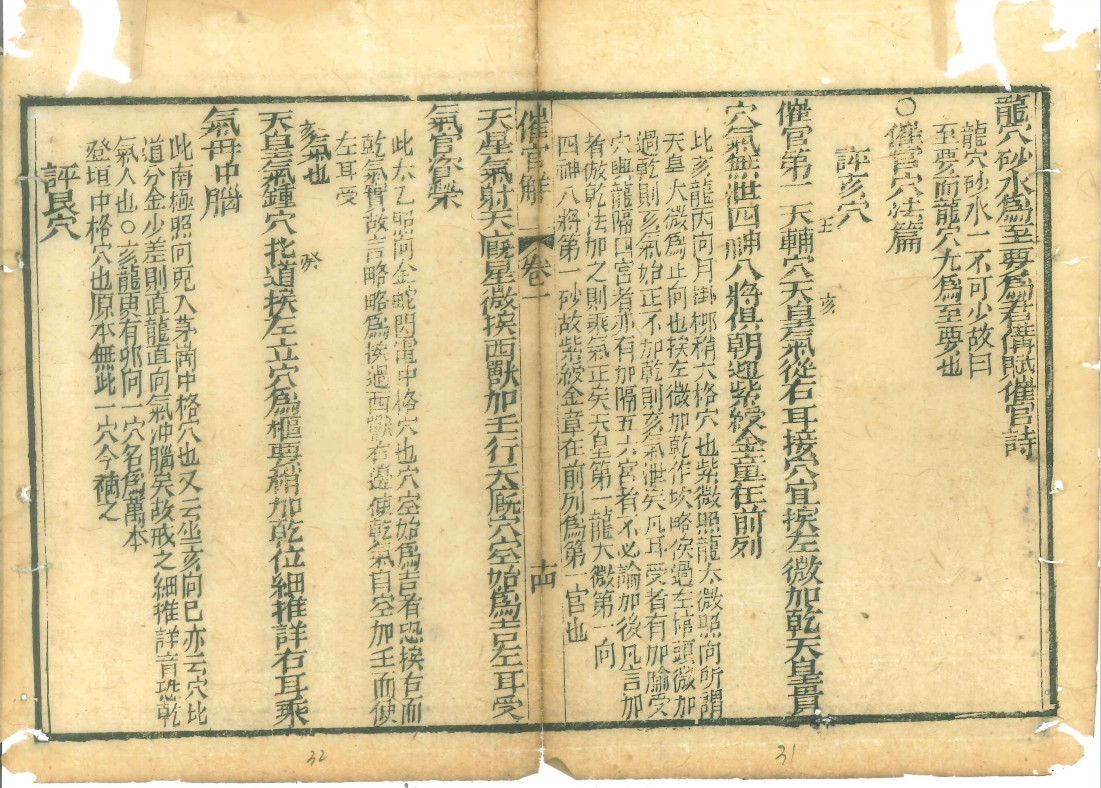 龍穴砂水爲至要爲君僃賦催官詩
龍穴砂水一不可少故曰
至要而龍穴尤爲至要也
○催官穴法篇
評亥穴
壬 亥
催官第一天輔穴天皇氣從右耳接穴宜挨左微加乾天皇貫
穴氣無泄四神八將俱朝迎紫綬金章在前列
此亥龍丙向月掛梛稍六格穴也紫微照龍太微照向所謂
天皇太微爲正向也挨左微加乾作坎略挨過左棺頭微加
過乾則亥氣始正不加乾則亥氣泄矣凡耳受者有加腧受
穴與龍隔四宮者亦有加隔五六宮者不必論加後凡言加
者倣乾法加之則乘氣正矣天皇第一龍太微第一向
四神八將第一砂故紫綬金章在前列爲第一官也
催官解 卷一 十四
天星氣射天廐星微挨西獸加壬行天廐穴空始爲吉左耳受
氣官資榮
此太乙照向金蛇閃電中格穴也穴空始爲吉者恐挨右而
乾氣實故言略略爲挨過西獸右邊使乾氣自空加壬而使
左耳受
亥氣也 癸
天皇氣鍾穴北道挨左立穴爲樞要稍加乾位細推詳右耳乘
氣毋冲腦
此南極照向克入茅崗中格穴也又云坐亥向巳亦云穴比
道分金少差則直龍直向氣冲腦矣故戒之細推詳音恐乾
氣人也○亥龍更有卯向一穴名爲萬本
登垣中格穴也原本無此一穴今補之
評艮穴
32
31